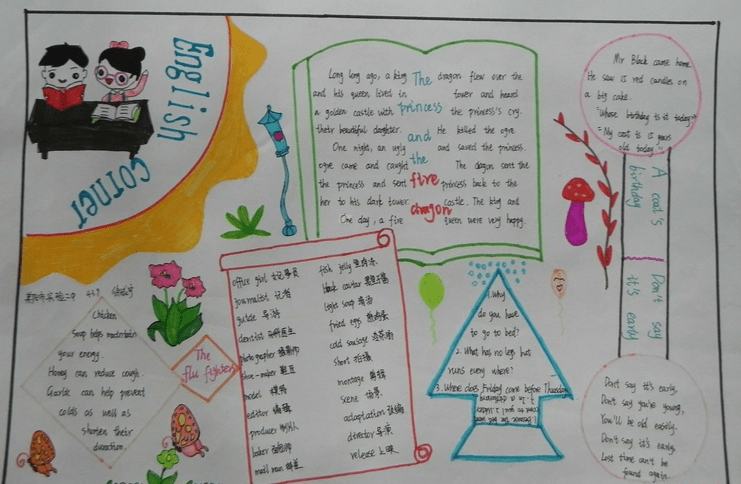 English
corner
Long long ago, a king
and his queen lived in
a golden castle with
their beautiful daughter.
One night, an ugly
ogre came and caught
the princess and sent
her to his dark tower.
One day, a fire
The
princess
and
the
fire
dragon
dragon flew over the
tower and heard
the princess's cry.
He killed the ogre
and saved the princess.
The dragon sent the
princess back to the
castle. The king and
queen were very happy.
Mr Black came home.
He saw 15 red candles on
a big cake.
"Whose birthday is it today?"
"My coat is 15 years
old today."
A coat's
birthday
Don't say
it's early
Don't say it's early,
Don't say you're young,
You'll be old easily.
Don't say it's early,
Lost time can't be
found again.
Chicken
soup helps
your energy.
Honey can reduce cough.
Garlic can help prevent
colds as well as
shorten their
duration.
The
flu fighters
office girl
journalist 记者
guide 导游
dentist 牙科医生
photographer 摄影师
shoe-maker
model 模特
editor 编辑
producer 制片人
baker
mail man
fish jelly
black caviar
light soup 清汤
fried eggs
cold sausage
short
montage 剪辑
scene 场景
adaptation 改编
director 导演
release 上映
1. Why
do you have
to go to bed?
2. What has no legs but
runs every where?
3. Where does Friday come before Thursday